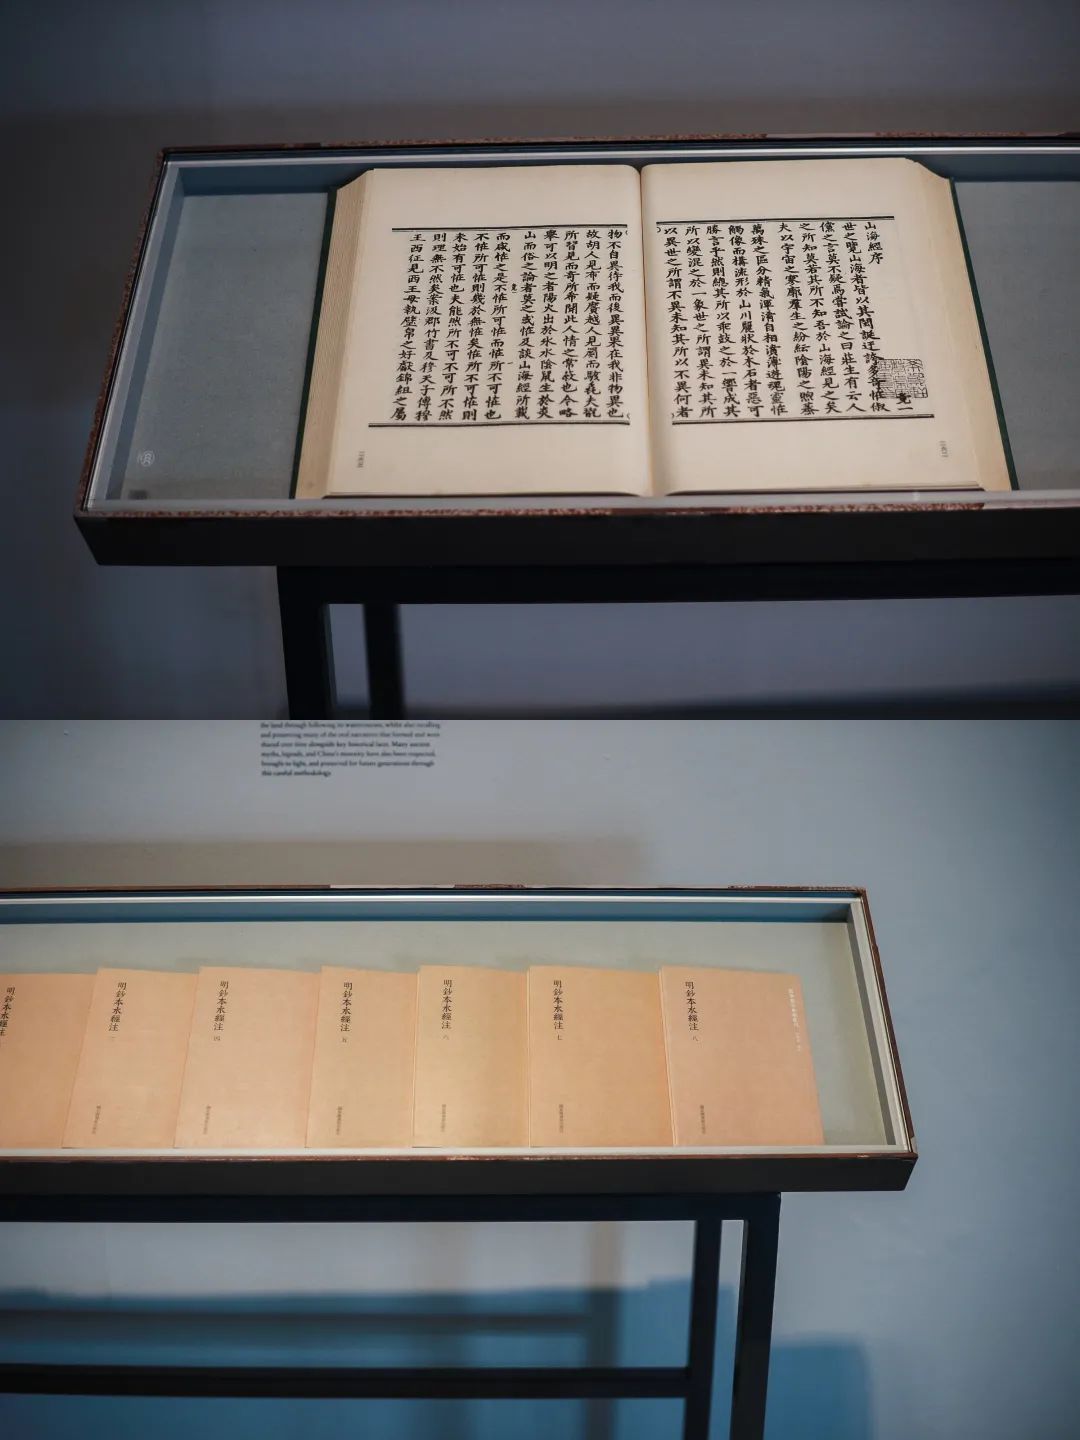 山海經序
世之覽山海者皆以其閎誕迂誇多奇怪俶
儻之言莫不疑焉嘗試論之曰莊生有云人
之所知莫若其所不知吾於山海經見之矣
夫以宇宙之寥廓羣生之紛紜陰陽之煦蒸
萬殊之區分精氣渾淆自相濆薄遊魂靈怪
觸像而構流形於山川麗狀於木石者惡可
勝言乎然則總其所以乖鼓之於一響成其
所以變混之於一象世之所謂異未知其所
以異世之所謂不異未知其所以不異何者
物不自異待我而後異異果在我非物異也
故胡人見布而疑黂越人見罽而駭毳夫翫
所習見而奇所希聞此人情之常蔽也今略
舉可以明之者陽火出於冰水陰鼠生於炎
山而俗之論者莫之或怪及談山海經所載
而咸怪之是不怪所可怪而怪所不可怪也
不怪所可怪則幾於無怪矣怪所不可怪則
未始有可怪也夫能然所不可不可所不然
則理無不然矣案汲郡竹書及穆天子傳穆
王西征見西王母執璧帛之好獻錦組之屬
the land through following its watercourses, whilst also recalling
and preserving many of the oral narratives that formed and were
shared over time alongside key historical facts. Many ancient
myths, legends, and China's minority have also been respected,
brought to light, and preserved for future generations through
this careful methodology.
明鈔本水經注
明鈔本水經注 二
明鈔本水經注 四
明鈔本水經注 五
明鈔本水經注 六
明鈔本水經注 七
明鈔本水經注 八